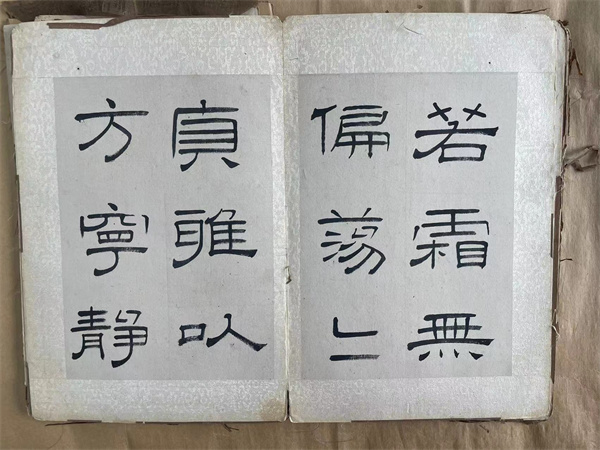 若霜無
偏蕩之
貞雅以
方寧靜